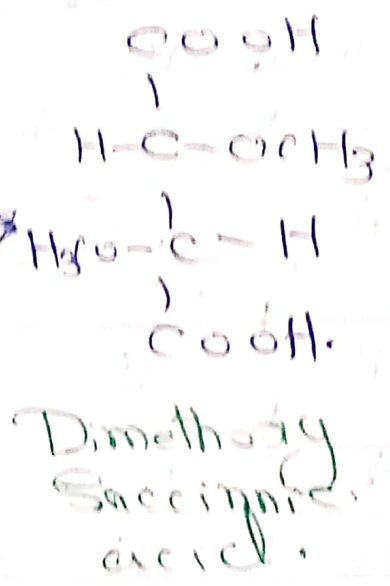 COOH
|
H-C-OCH3
|
H3CO-C-H
|
COOH.
Dimethoxy
Succinnic.
acid.